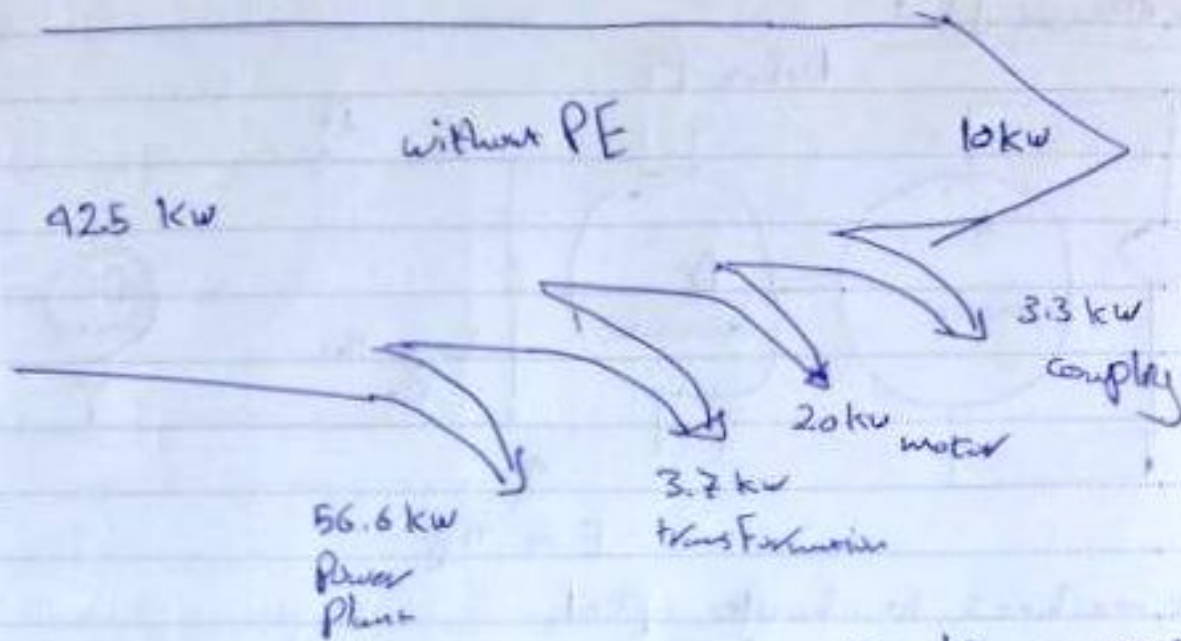 without PE
10 kw
92.5 kw
3.3 kw
coupling
20 kw motor
3.7 kw
transformation
56.6 kw
Power
Plant